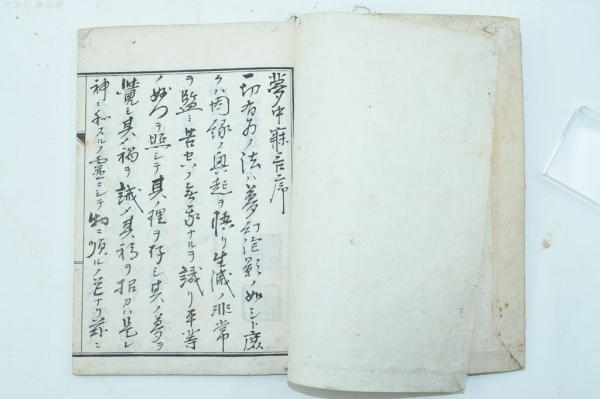 夢中寐言序
一切有為ノ法ハ夢幻泡影ノ如シト広
ク ハ因縁ノ興起ヲ悟リ生滅ノ非常
ヲ監ミ苦空ノ無我ナルヲ識リ平等
ノ妙 ヲ照シテ其ノ理ヲ存シ其ノ夢ヲ
覚シ其ノ禍ヲ誡メ其祷ヲ招 ハ是レ
神ニ和スルノ霊ニシテ物ニ順ルノ ナリ茲ニ